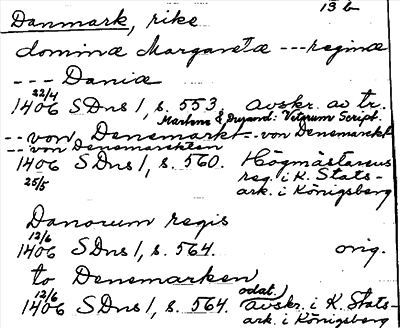 13 b
Danmark, rike
dominæ Margaretæ --- reginæ
--- Daniæ
22/4
1406 SDns 1, s. 553, avskr. av tr.
Martene & Durand: Veterum Script.
-- von Denemarkt -- von Denemarckt
-- von Denemarckten
1406 SDns 1, s. 560. Högmästarens
25/5 reg. i K. Stats-
ark. i Königsberg
Danorum regis
12/6
1406 SDns 1, s. 564. orig.
to Denemarken
12/6 odat.
1406 SDns 1, s. 564. avskr. i K. Stats-
ark. i Königsberg